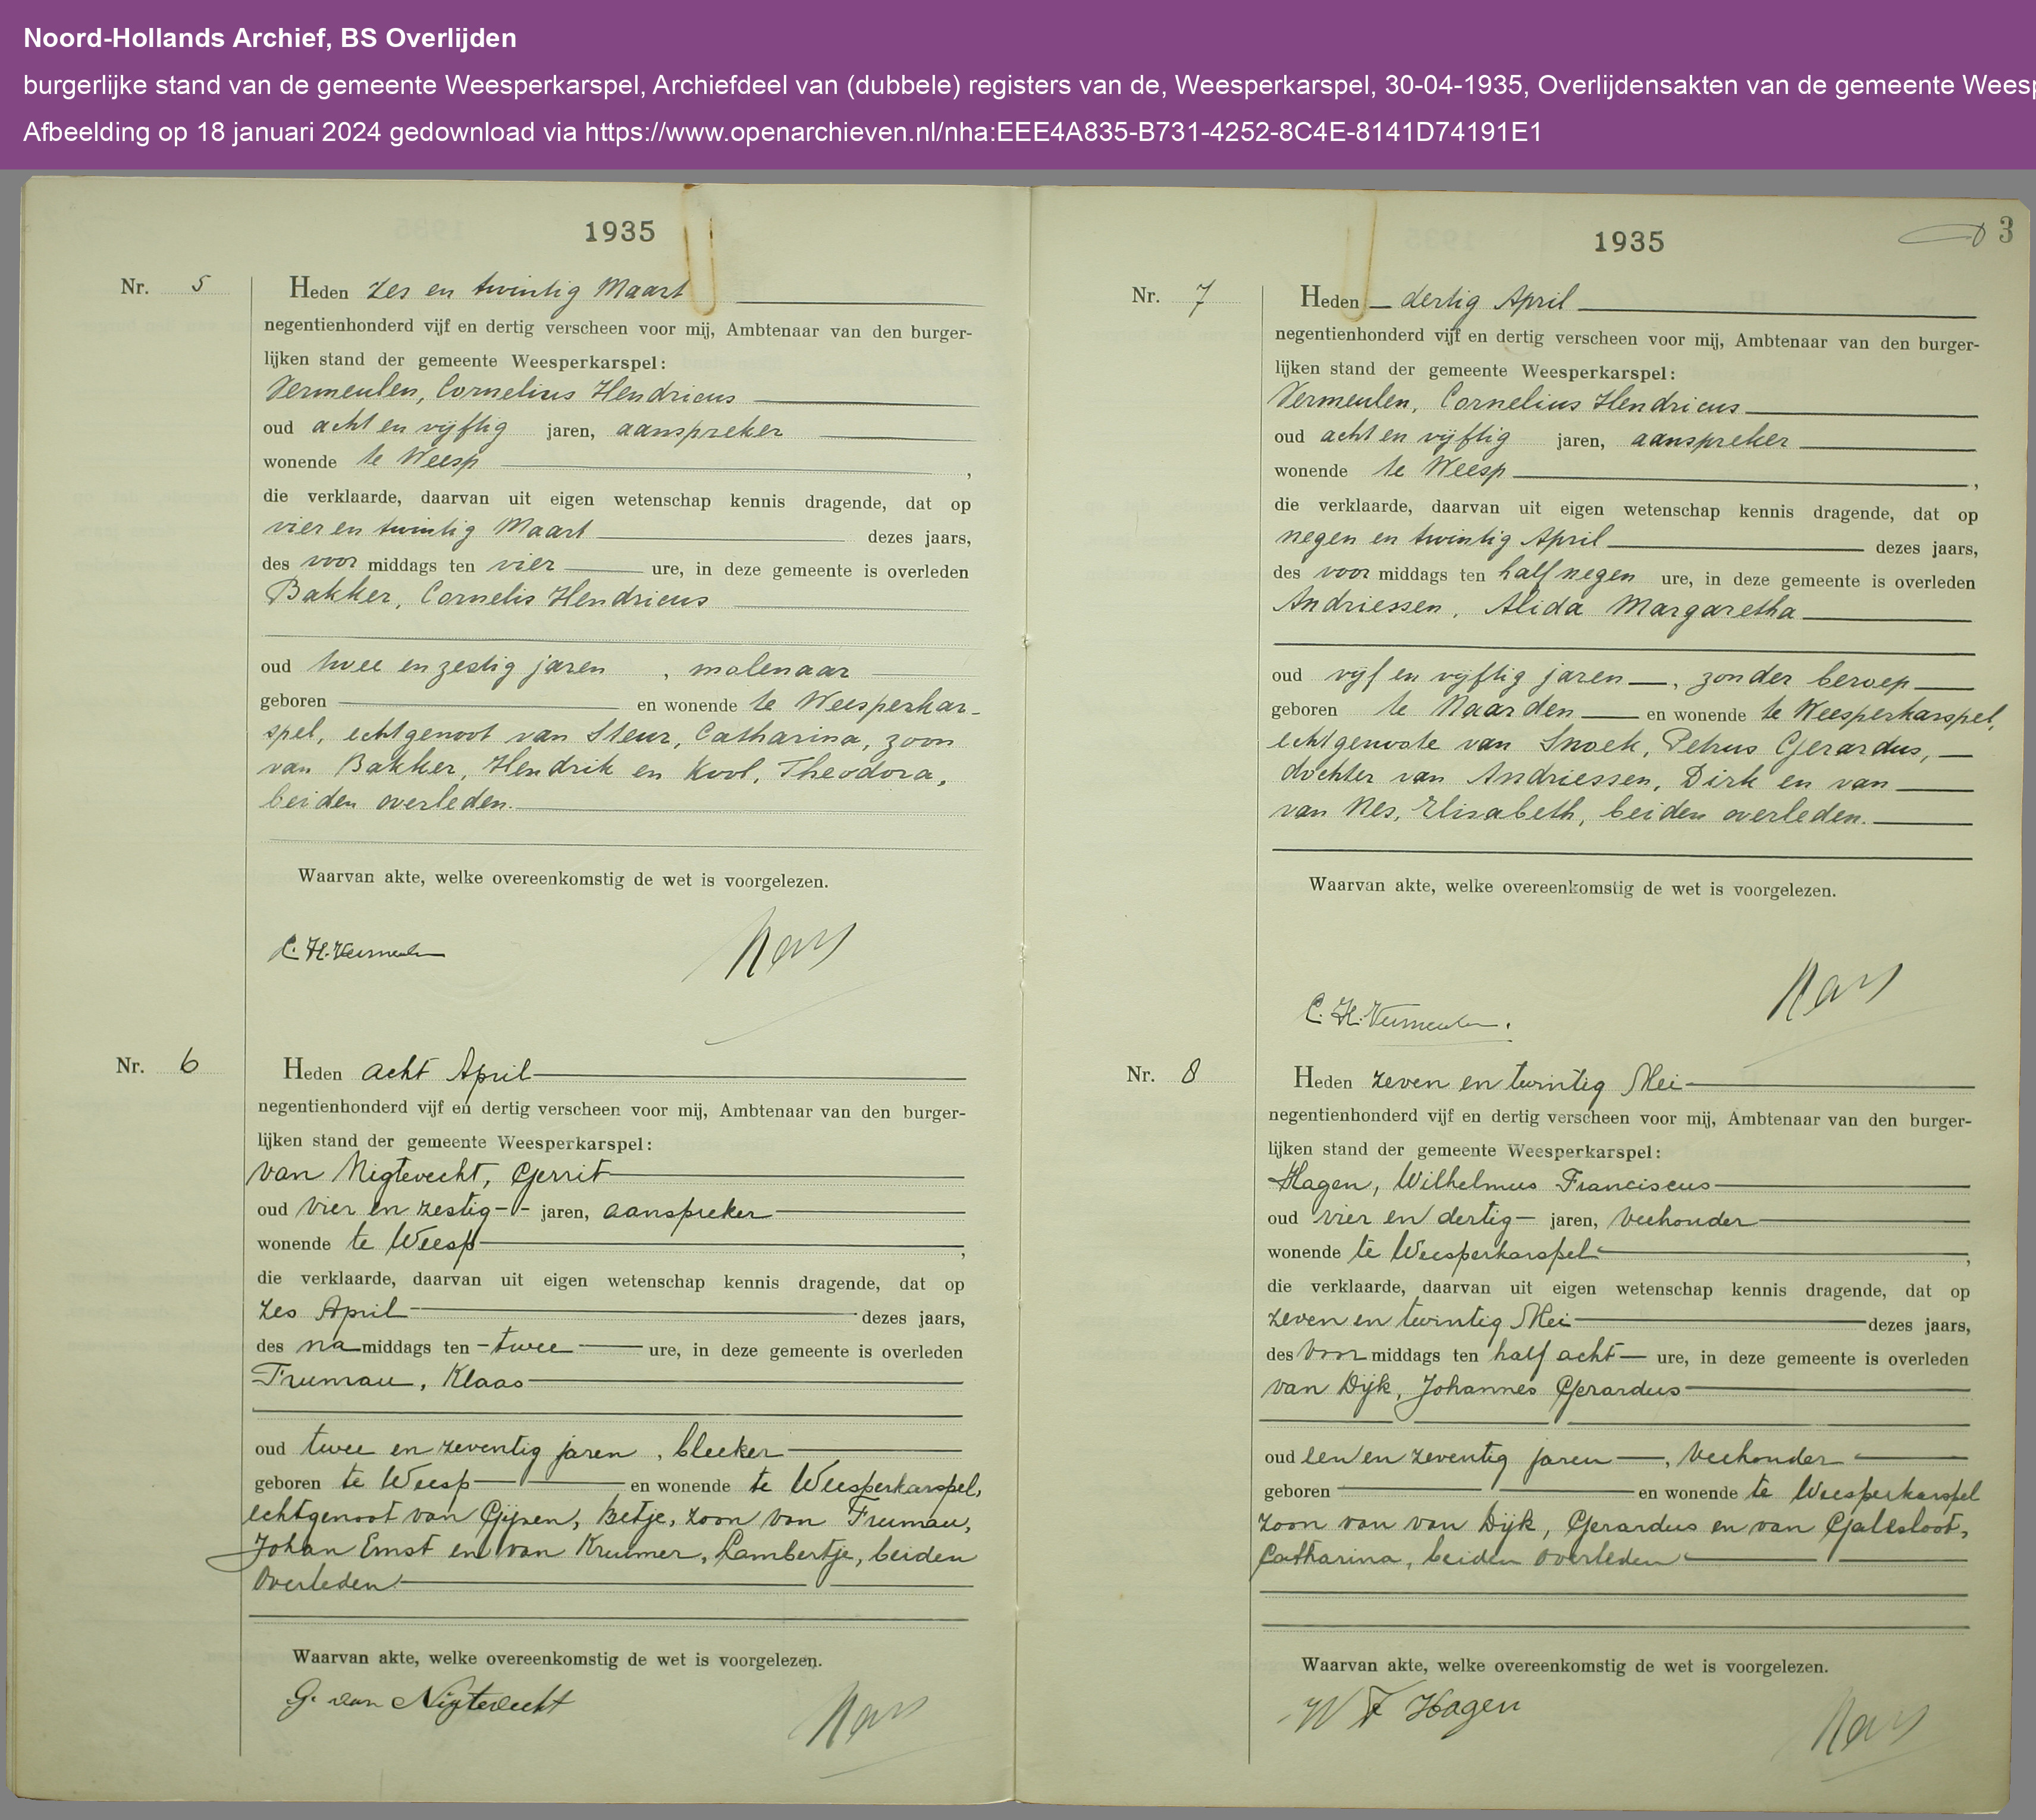 Noord-Hollands Archief, BS Overlijden
burgerlijke stand van de gemeente Weesperkarspel, Archiefdeel van (dubbele) registers van de, Weesperkarspel, 30-04-1935, Overlijdensakten van de gemeente Weesp
Afbeelding op 18 januari 2024 gedownload via https://www.openarchieven.nl/nha:EEE4A835-B731-4252-8C4E-8141D74191E1
1935
Nr. 5
Heden zes en twintig Maart
negentienhonderd vijf en dertig verscheen voor mij, Ambtenaar van den burger-
lijken stand der gemeente Weesperkarspel:
Vermeulen, Cornelius Hendricus
oud acht en vijftig jaren, aanspreker
wonende te Weesp,
die verklaarde, daarvan uit eigen wetenschap kennis dragende, dat op
vier en twintig Maart dezes jaars,
des voor middags ten vier ure, in deze gemeente is overleden
Bakker, Cornelis Hendricus
oud twee en zestig jaren, molenaar
geboren en wonende te Weesperkar-
spel, echtgenoot van Steur, Catharina, zoon
van Bakker, Hendrik en Kool, Theodora,
beiden overleden.
Waarvan akte, welke overeenkomstig de wet is voorgelezen.
C. H. Vermeulen
Nr. 6
Heden acht April
negentienhonderd vijf en dertig verscheen voor mij, Ambtenaar van den burger-
lijken stand der gemeente Weesperkarspel:
van Nigtevecht, Gerrit
oud vier en zestig jaren, aanspreker
wonende te Weesp,
die verklaarde, daarvan uit eigen wetenschap kennis dragende, dat op
zes April dezes jaars,
des na middags ten twee ure, in deze gemeente is overleden
Frumau, Klaas
oud twee en zeventig jaren, bleeker
geboren te Weesp en wonende te Weesperkarspel,
echtgenoot van Gijsen, Betje, zoon van Frumau,
Johan Ernst en van Krumer, Lambertje, beiden
overleden
Waarvan akte, welke overeenkomstig de wet is voorgelezen.
G. van Nigtevecht
1935
3
Nr. 7
Heden dertig April
negentienhonderd vijf en dertig verscheen voor mij, Ambtenaar van den burger-
lijken stand der gemeente Weesperkarspel:
Vermeulen, Cornelius Hendricus
oud acht en vijftig jaren, aanspreker
wonende te Weesp,
die verklaarde, daarvan uit eigen wetenschap kennis dragende, dat op
negen en twintig April dezes jaars,
des voor middags ten half negen ure, in deze gemeente is overleden
Andriessen, Alida Margaretha
oud vijf en vijftig jaren, zonder beroep
geboren te Naarden en wonende te Weesperkarspel,
echtgenoote van Snoek, Petrus Gerardus,
dochter van Andriessen, Dirk en van
van Nes, Elisabeth, beiden overleden.
Waarvan akte, welke overeenkomstig de wet is voorgelezen.
C. H. Vermeulen.
Nr. 8
Heden zeven en twintig Mei
negentienhonderd vijf en dertig verscheen voor mij, Ambtenaar van den burger-
lijken stand der gemeente Weesperkarspel:
Hagen, Wilhelmus Franciscus
oud vier en dertig jaren, veehouder
wonende te Weesperkarspel,
die verklaarde, daarvan uit eigen wetenschap kennis dragende, dat op
zeven en twintig Mei dezes jaars,
des voor middags ten half acht ure, in deze gemeente is overleden
van Dijk, Johannes Gerardus
oud een en zeventig jaren, veehouder
geboren en wonende te Weesperkarspel
zoon van van Dijk, Gerardus en van Galesloot,
Catharina, beiden overleden
Waarvan akte, welke overeenkomstig de wet is voorgelezen.
W F Hagen